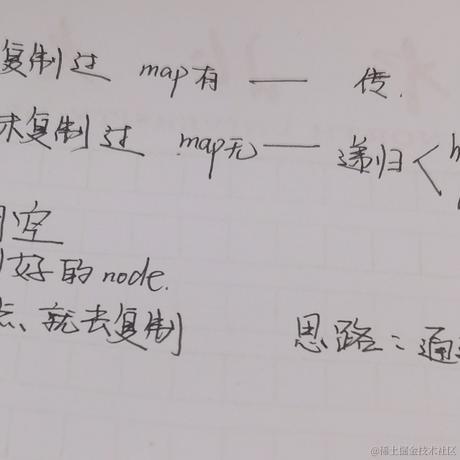 复制过 map有 —— 传.
未复制过 map无 —— 递归 <
空
好的node.
点、就去复制
思路:通
@稀土掘金技术社区